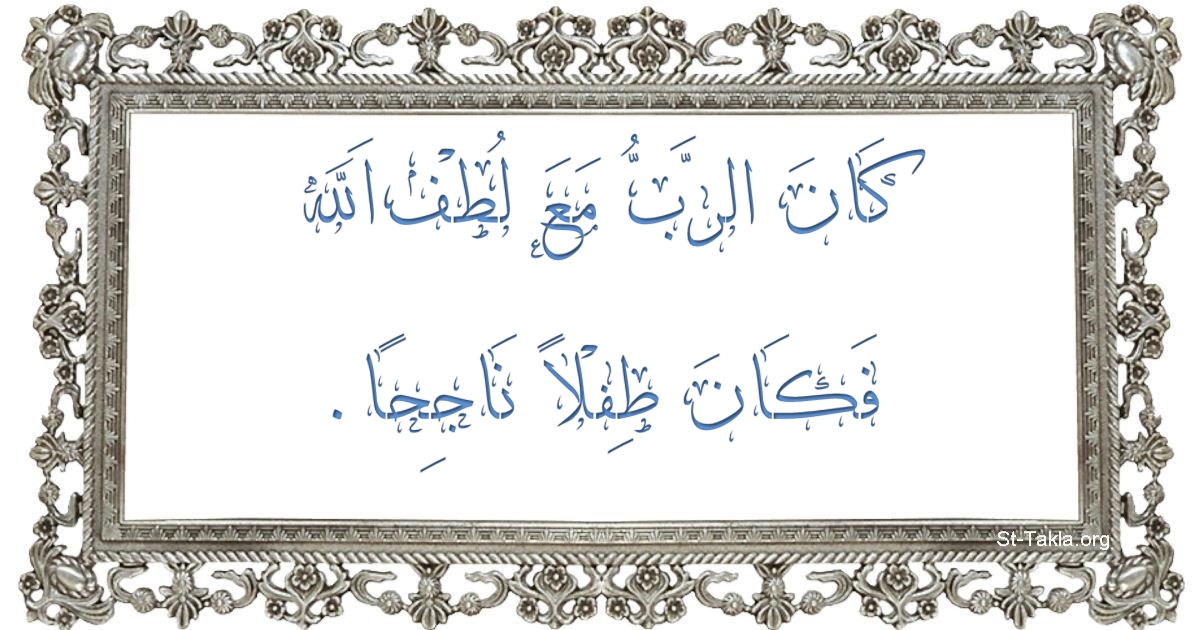 كَانَ الرَّبُّ مَعَ لُطْفْ اَللَّهْ
فَكَانَ طِفْلاً نَاجِحًا .
St-Takla.org